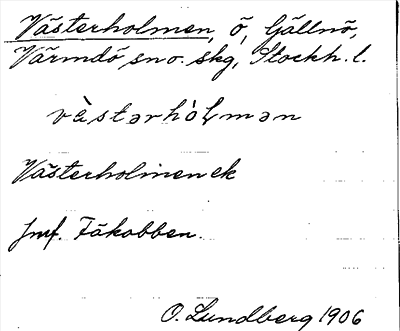 Västerholmen, ö, Gällnö,
Värmdö sno. skg, Stockh. l.
västərhòɫmən
Västerholmen ek
Jmf. Fäkobben.
O. Lundberg 1906